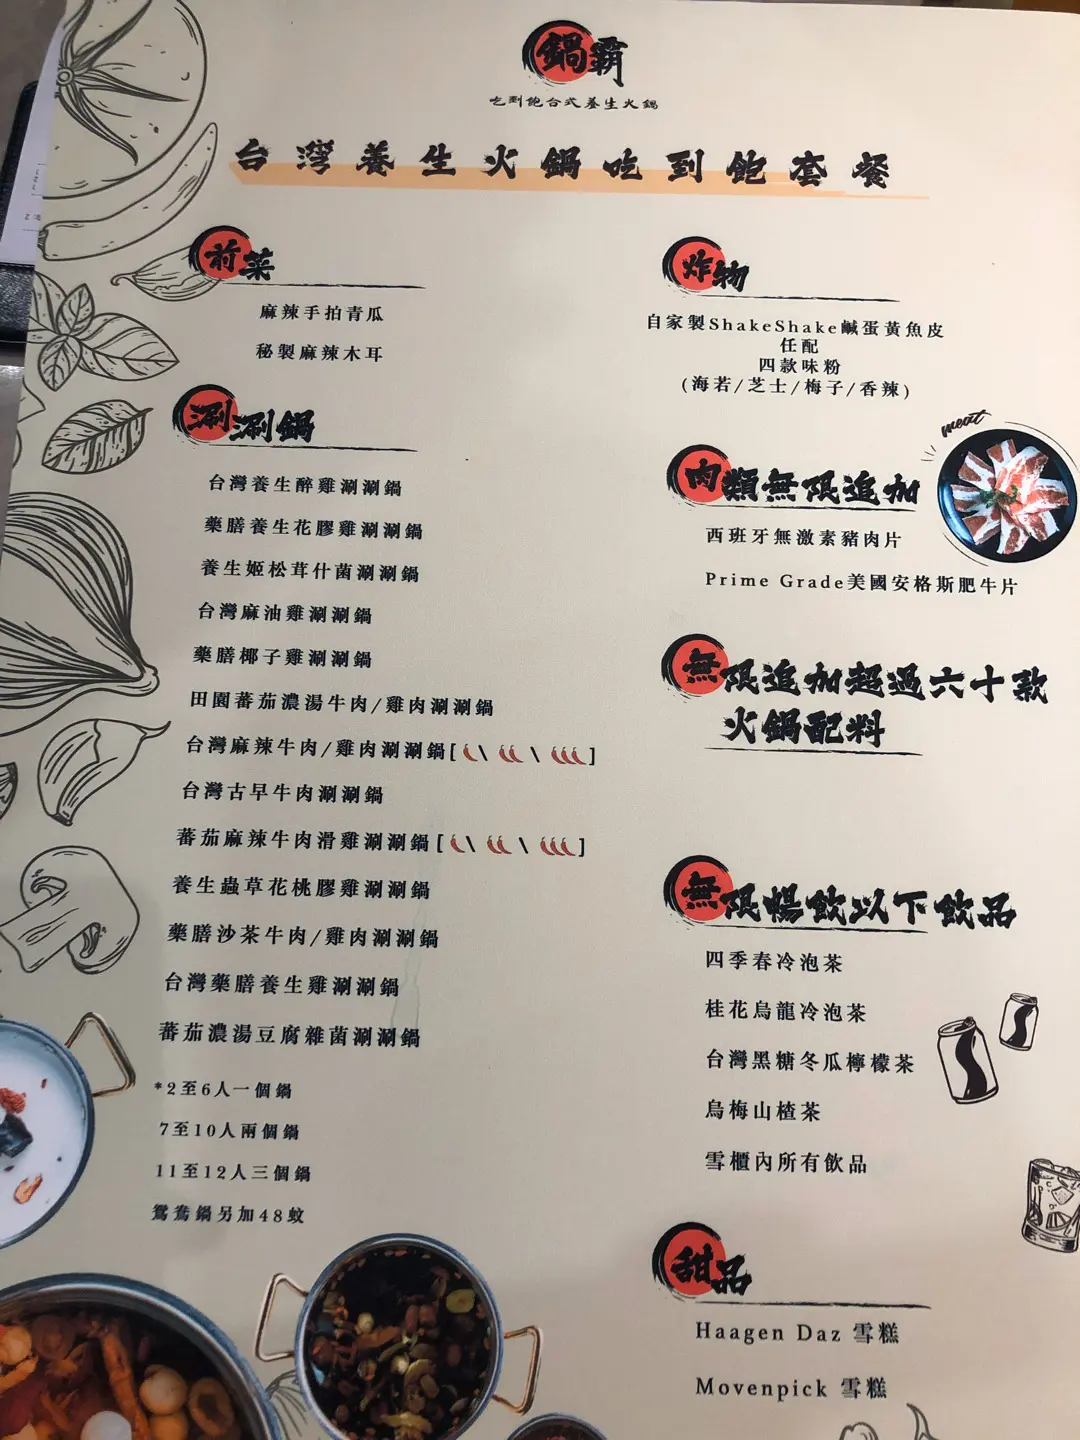 鍋霸
吃到飽台式養生火鍋
台灣養生火鍋吃到飽套餐
前菜
麻辣手拍青瓜
秘製麻辣木耳
涮涮鍋
台灣養生醉雞涮涮鍋
藥膳養生花膠雞涮涮鍋
養生姬松茸什菌涮涮鍋
台灣麻油雞涮涮鍋
藥膳椰子雞涮涮鍋
田園蕃茄濃湯牛肉/雞肉涮涮鍋
台灣麻辣牛肉/雞肉涮涮鍋[ \ \ ]
台灣古早牛肉涮涮鍋
蕃茄麻辣牛肉滑雞涮涮鍋[ \ \ ]
養生蟲草花桃膠雞涮涮鍋
藥膳沙茶牛肉/雞肉涮涮鍋
台灣藥膳養生雞涮涮鍋
蕃茄濃湯豆腐雜菌涮涮鍋
*2至6人一個鍋
7至10人兩個鍋
11至12人三個鍋
鴛鴦鍋另加48蚊
炸物
自家製ShakeShake鹹蛋黃魚皮
任配
四款味粉
(海若/芝士/梅子/香辣)
meat
肉類無限追加
西班牙無激素豬肉片
Prime Grade美國安格斯肥牛片
無限追加超過六十款
火鍋配料
無限暢飲以下飲品
四季春冷泡茶
桂花烏龍冷泡茶
台灣黑糖冬瓜檸檬茶
烏梅山楂茶
雪櫃內所有飲品
甜品
Haagen Daz 雪糕
Movenpick 雪糕